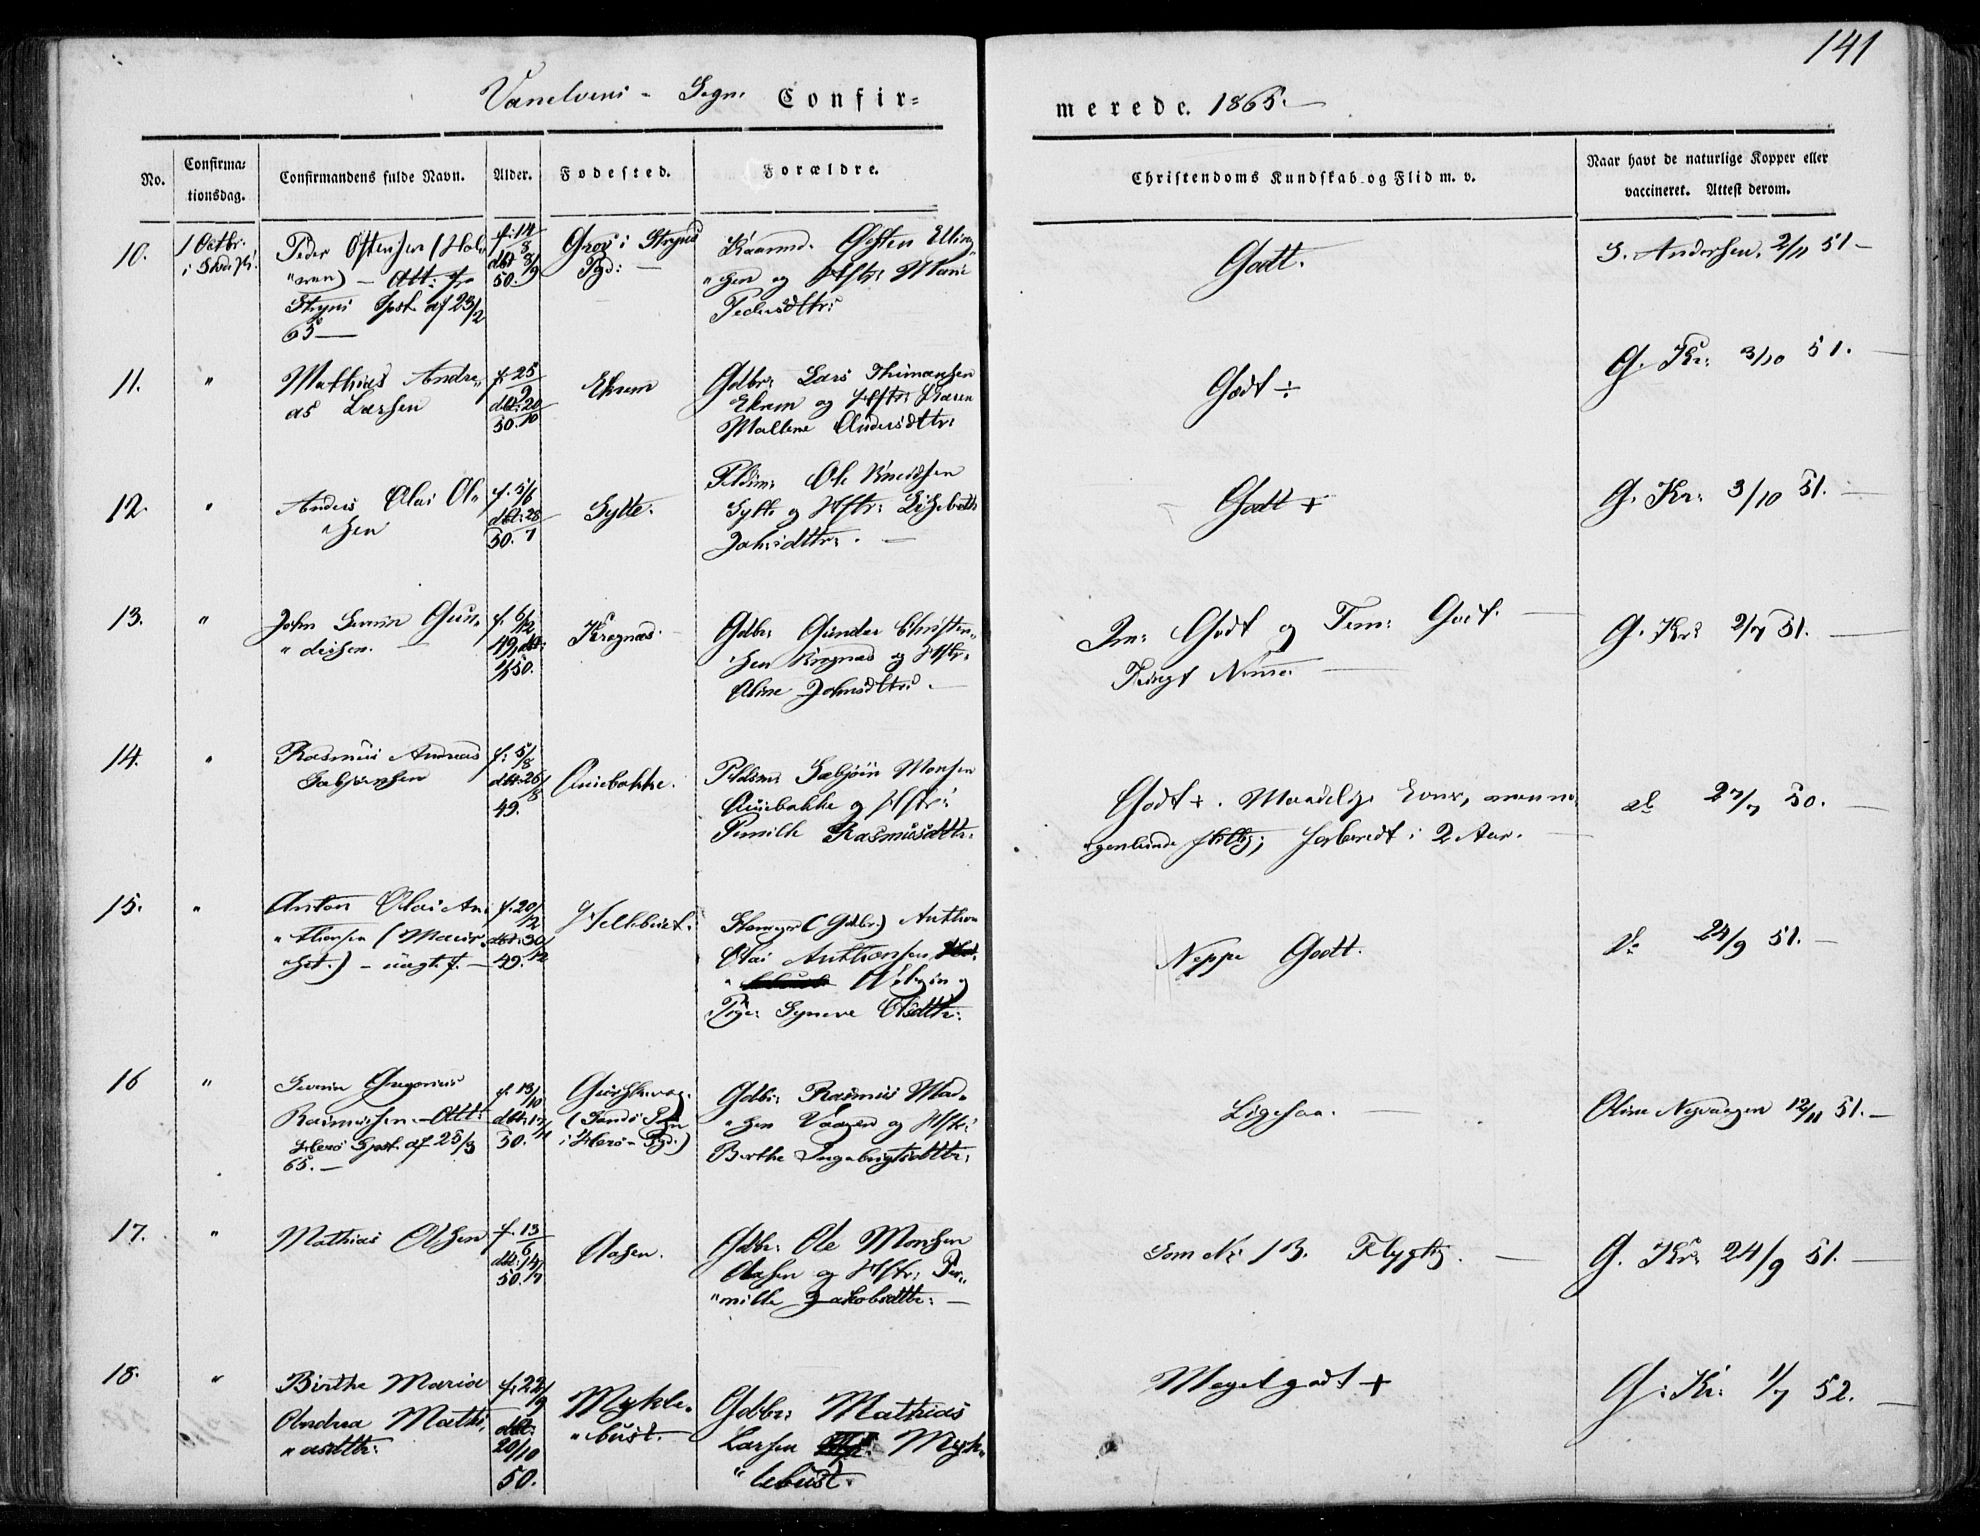 141
Vanelvens - Sogn Confir=
merede. 1865.
No.
Confirma=
tionsdag.
Confirmandens fulde Navn.
Alder.
Fødested.
Forældre.
Christendoms Kundskab og Flid m. v.
Naar havt de naturlige Kopper eller
vaccineret. Attest derom.
10.
1 Octbr.
Peder Østensen (Hol„
„ren) – Att: fra
Stryns Spst. af 23/2
65 —
f: 14/8
dbt 8/9
50.
Grov i Stryns
Pgd: —
Østen Elling„
„sen og Hstr: Mari
Pedersdttr:
Godt.
S. Andersen. 2/11 51 –
11.
"
Mathias Andre„
as Larsen
f: 25/9
dbt: 20/10
50.
Ekrem
Gdbr: Lars Thimansen
Ekrem og Hstr: Karen
Mallene Andersdttr:
Godt ÷
G. Kr: 3/10 51. —
12.
"
Anders Olai Ol„
„sen
f: 5/6
dbt: 28/7
50.
Sylte.
Pldsm: Ole Knudsen
Sylte og Hstr: Lisebeth
Johnsdttr: . —
Godt +
G. Kr: 3/10 51. —
13.
"
John Severin Gun„
„dersen. —
f. 6/12
49 dbt:
50.
Kragnæs.
Gdbr: Gunder Christen„
„sen Kragnæs og Hstr:
Oline Johnsdttr: . —
Godt og Godt. —
G. Kr: 2/7 51. —
14.
"
Rasmus Andreas
Sæbjørnsen
f: 5/8
dbt: 26/8
49.
Pldsm: Sæbjørn Monsen
og Hstr:
Pernille Rasmusdttr.
Godt +. Maadelige Evner, men no„
„genlunde flittig; forberedt i 2 Aar. —
do 27/7 50. —
15.
"
Anton Olai An„
„thonsen (
– uægt. f. —
f. 20/12
dbt: 30/12
49.
(Gdbr.) Anthon
Olai Anthonsen
og
Pige: Synneve Olsdttr:
Neppe Godt.
do 24/9 51. –
16
"
Severin Gregorius
Rasmussen. – Att:
Herø Spst. af 25/3
65. –
f. 13/10
50.
(Sandø Sogn
i Herø – Pgd.)
Gdbr: Rasmus Mad„
„sen Vaagen og Hstr:
Berthe Ingebrigtsdttr:
Ligesaa. —
Oline Nysvangen 12/11 51. –
17.
"
Mathias Olsen
f. 13/6
dbt: 14/7
50.
Aasen.
Gdbr: Ole Monsen
Aasen og Hstr: Per„
„nille Jakobsdttr: —
Som No 13. Flygtig. —
G. Kr: 24/9 51. —
18.
"
Birthe Maria
Andrea Mathi„
„asdttr:
f: 22/9
dbt:
20/10
50.
Mykle„
„bust.
Gdbr: Mathias
Larsen Myk„
„lebust.
Meget godt +
G: Kr: 1/7 52. —